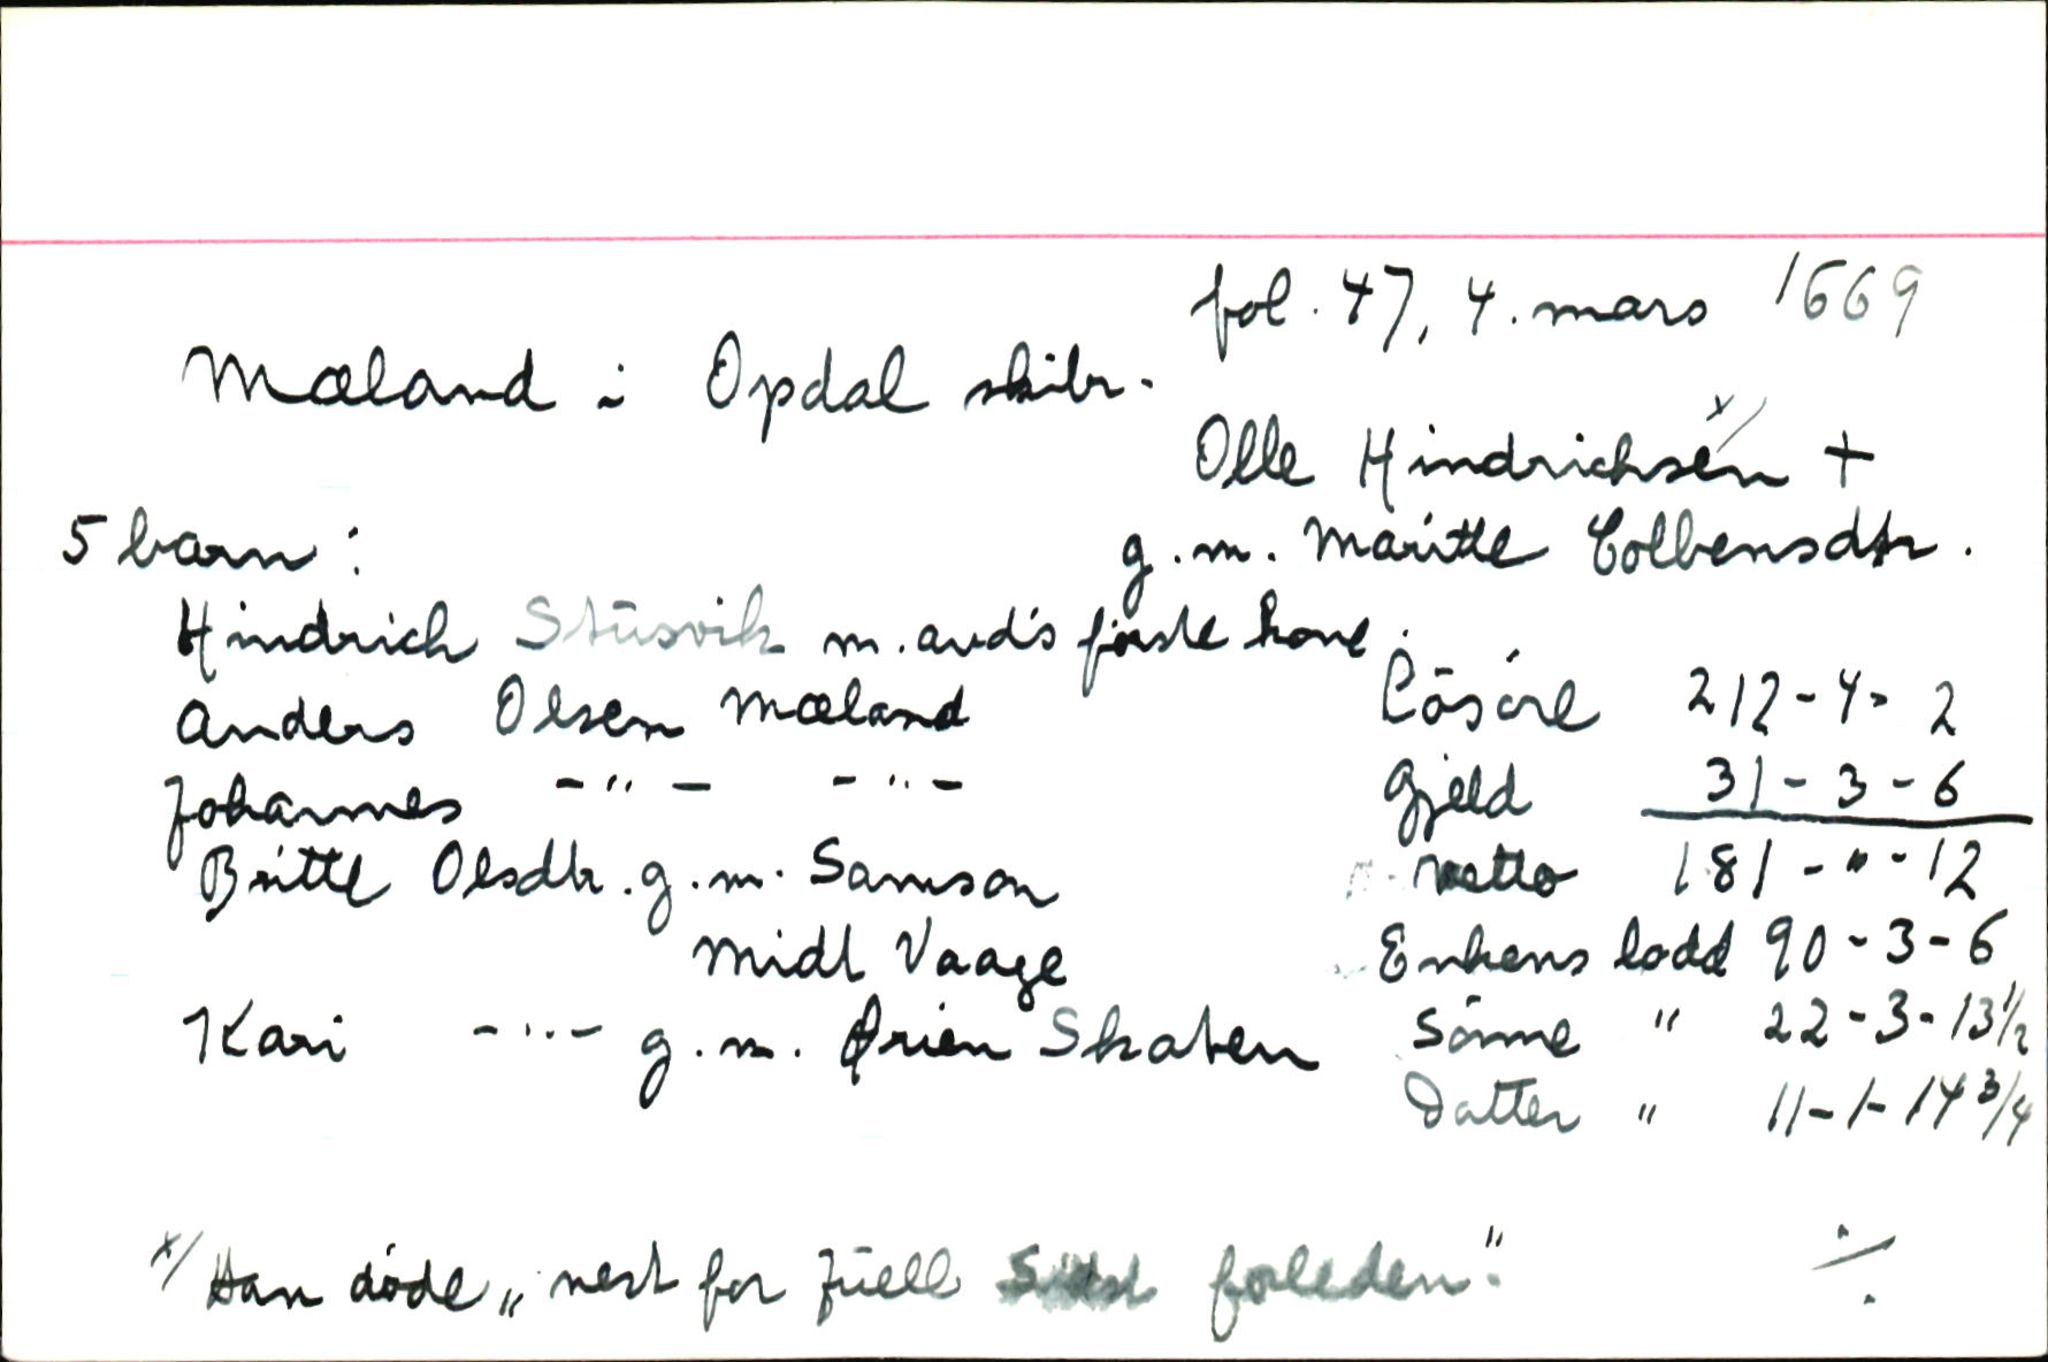 fol. 47, 4. mars 1669
Mæland i Opdal skibr.
Olle Hindrichsen x/ +
5 barn :
g.m. Maritte Colbensdtr.
Hindrich Stüsvik m. avd's første kone.
Anders Olsen Mæland
Lösöre 212 - 4 - 2
Johannes - " - - " -
Gjeld 31 - 3 - 6
Britte Olsdtr. g.m. Samson
netto 181 - " - 12
Midt Vaage
Enkens lodd 90 - 3 - 6
Kari - " - g.m. Ørien Skaten
Sönne " 22 - 3 - 13 1/2
Datter " 11 - 1 - 14 3/4
x/ Han döde „ nest for Jüell Sidst forleden."